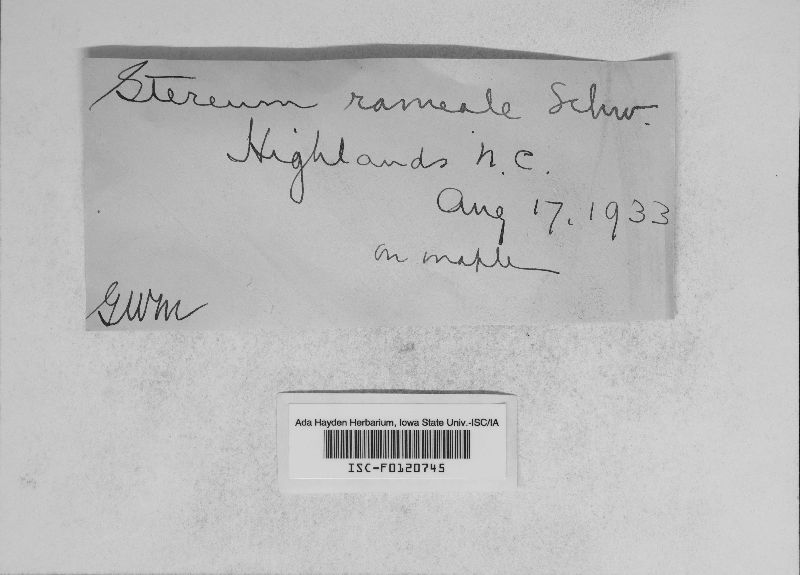 Stereum rameale Schw.
Highlands N.C.
Aug 17, 1933
on maple
GWM
Ada Hayden Herbarium, Iowa State Univ.-ISC/IA
ISC-F0120745